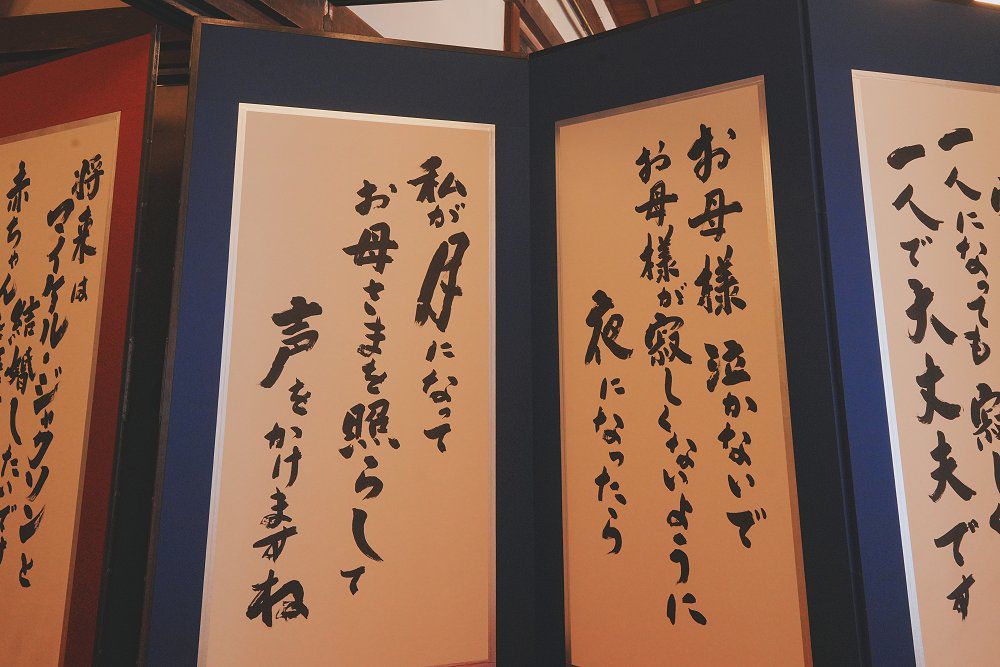 一人になっても 寂しく
一人で大丈夫です
お母様 泣かないで
お母様が寂しくないように
夜になったら
私が月になって
お母さまを照らして
声をかけますね
将来は
マイケル・ジャクソンと
結婚したいです
赤ちゃん